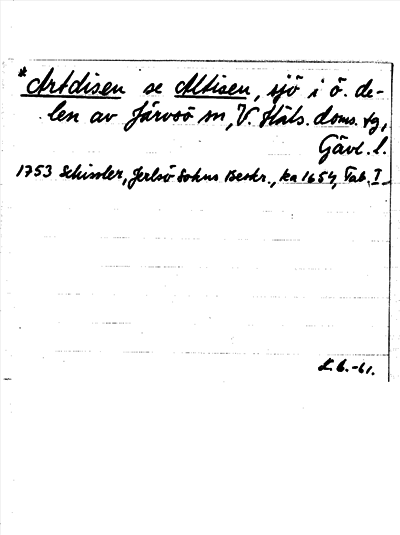 *Artdisen se Altisen, sjö i ö. de-
len av Järvsö sn, V. Häls. doms. tg,
Gävl. l.
1753 Schissler, Jerlsö Sokns Beskr., ka 1654, Tab. I
K.G.-61.